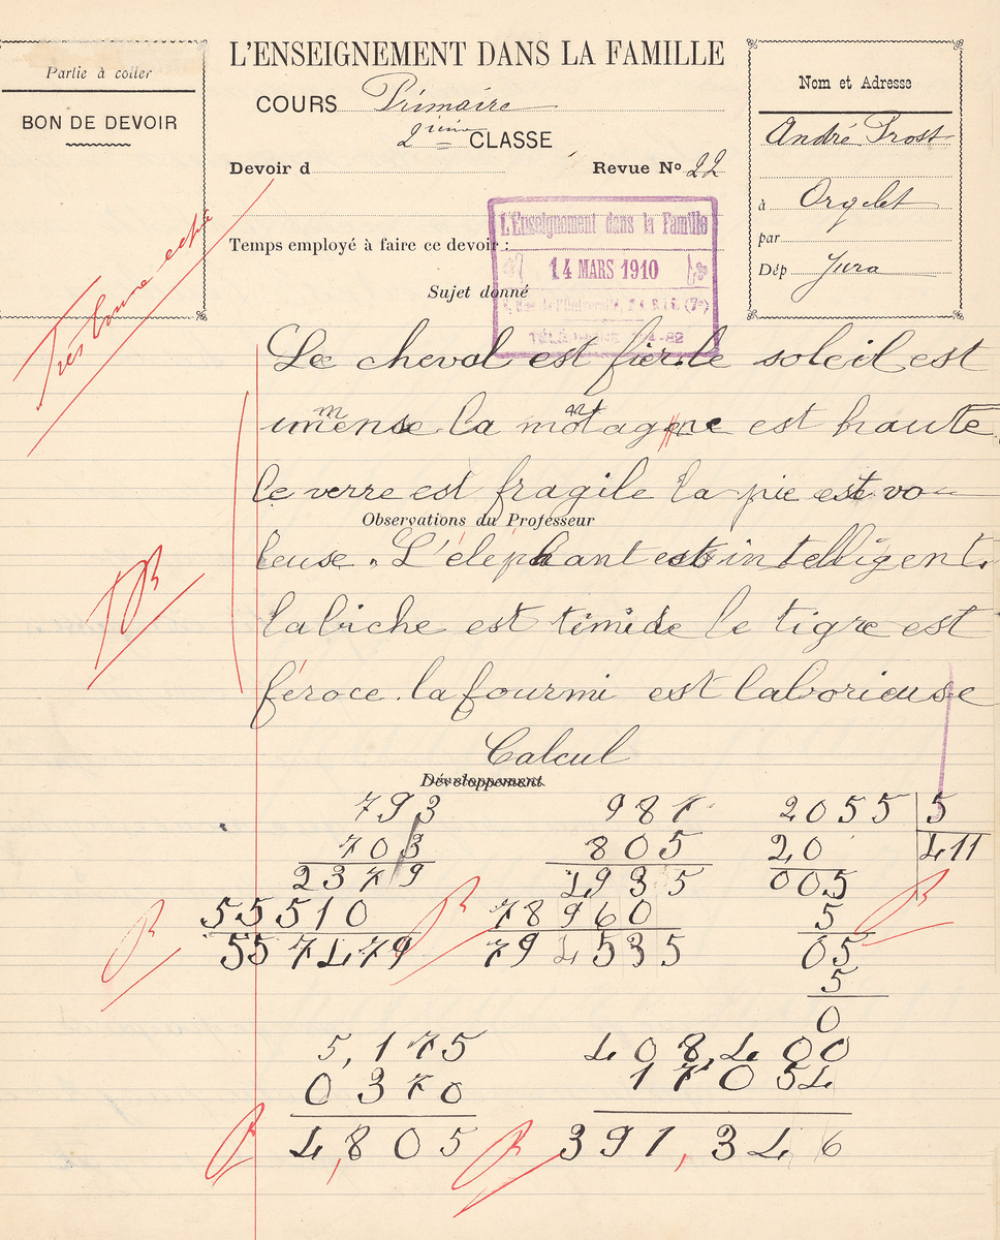 Partie à coller
BON DE DEVOIR
L'ENSEIGNEMENT DANS LA FAMILLE
COURS Primaire
2ième CLASSE
Devoir d
Revue No 22
Temps employé à faire ce devoir :
Sujet donné
Nom et Adresse
André Prost
à Orgelet
par
Dép Jura
L'Enseignement dans la Famille
14 MARS 1910
Très bonne
Le cheval est fier. le soleil est
immense la montagne est haute
le verre est fragile la pie est vo-
Observations du Professeur
leuse. L'éléphant est intelligent.
la biche est timide le tigre est
féroce. la fourmi est laborieuse
TB
Calcul
Développement
793
703
2379
55510
557479
B
987
805
4935
78960
794535
B
2055 5
20 411
005
5
05
5
0
B
5,175
0370
4,805
B
408,400
17054
391,346
B